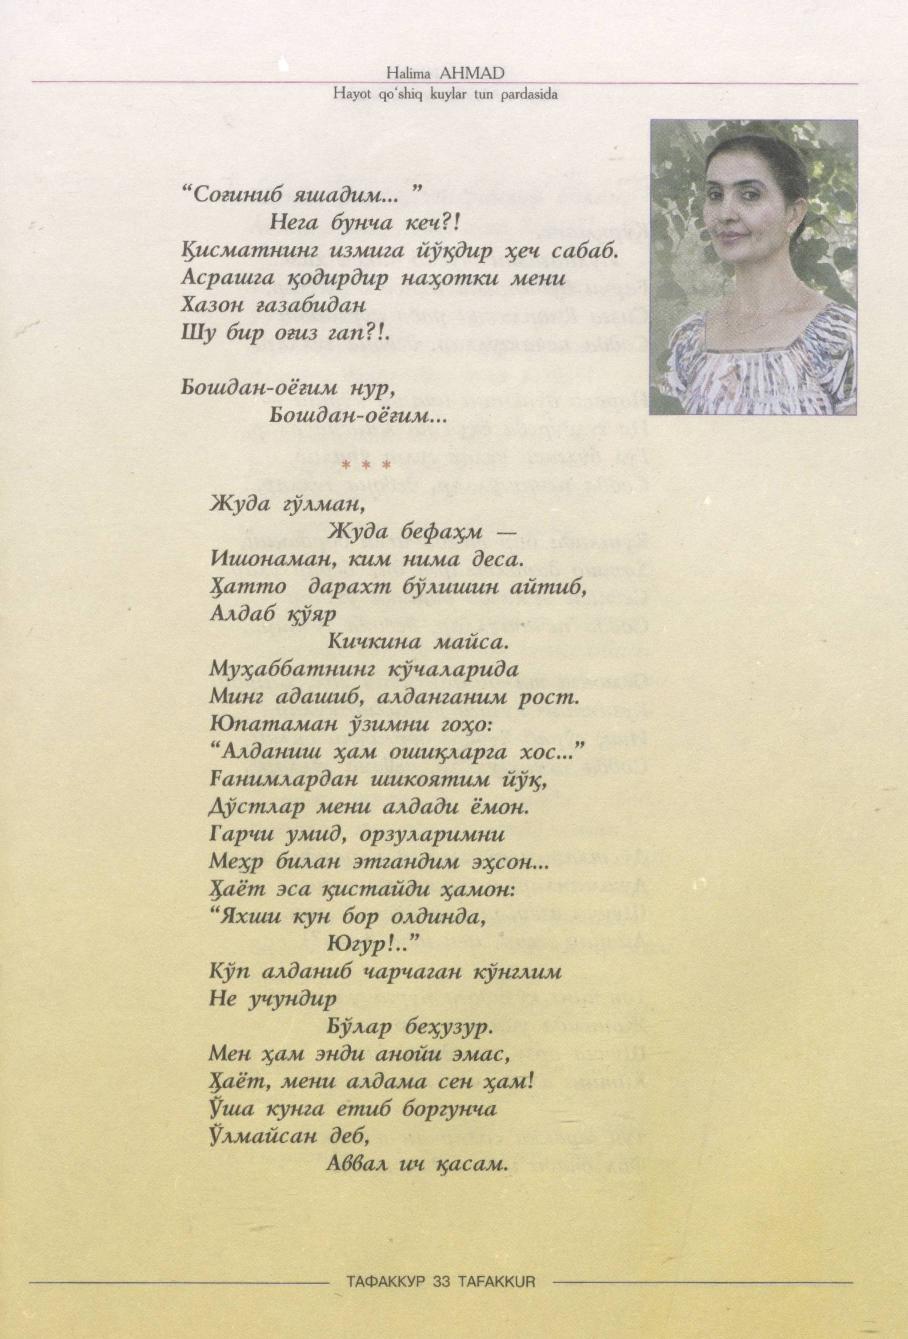 Halima AHMAD
Hayot qo‘shiq kuylar tun pardasida
“Соғиниб яшадим... ”
Нега бунча кеч?!
Қисматнинг измига йўқдир ҳеч сабаб.
Асрашга қодирдир наҳотки мени
Хазон ғазабидан
Шу бир оғиз гап?!.
Бошдан-оёғим нур,
Бошдан-оёғим...
* * *
Жуда гўлман,
Жуда бефаҳм —
Ишонаман, ким нима деса.
Ҳатто дарахт бўлишин айтиб,
Алдаб қўяр
Кичкина майса.
Муҳаббатнинг кўчаларида
Минг адашиб, алданганим рост.
Юпатаман ўзимни гоҳо:
“Алданиш ҳам ошиқларга хос...”
Ғанимлардан шикоятим йўқ,
Дўстлар мени алдади ёмон.
Гарчи умид, орзуларимни
Меҳр билан этгандим эҳсон...
Ҳаёт эса қистайди ҳамон:
“Яхши кун бор олдинда,
Югур!..”
Кўп алданиб чарчаган кўнглим
Не учундир
Бўлар беҳузур.
Мен ҳам энди анойи эмас,
Ҳаёт, мени алдама сен ҳам!
Ўша кунга етиб боргунча
Ўлмайсан деб,
Аввал ич қасам.
ТАФАККУР 33 TAFAKKUR